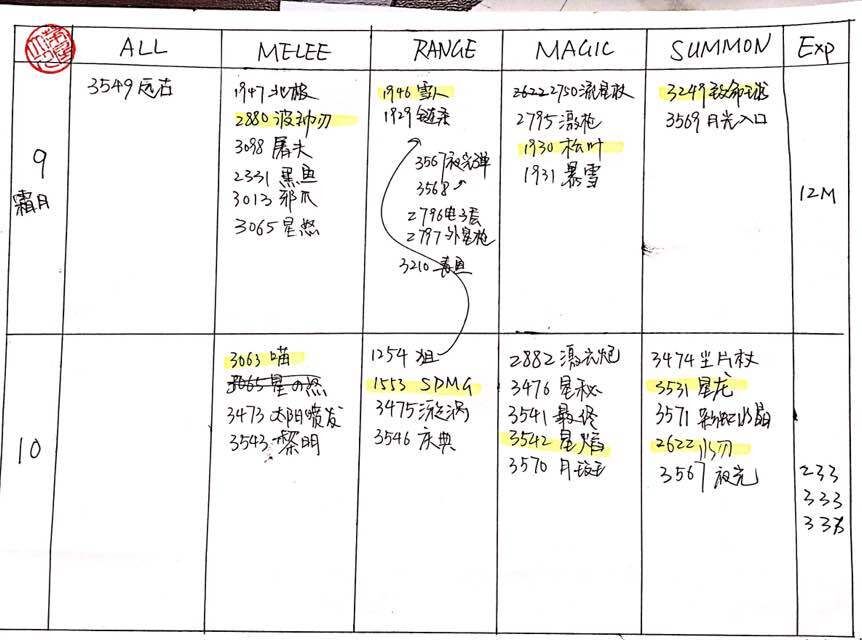 ALL
MELEE
RANGE
MAGIC
SUMMON
Exp
9
霜月
3549 远古
1947 北极
2880
3098 屠夫
2331 黑鱼
3013 邪爪
3065 星怒
1946 雪人
1929
3567 夜光弹
3568
2796 电子
2797 外星枪
3210
2750 流星杖
2795 激枪
1930 松叶
1931 暴雪
3249 致命球
3569 月光入口
12M
10
3063 喵
3065 星の怒
3473 太阳喷发
3543 黎明
1254 狙
1553 SDMG
3475 漩涡
3546 庆典
2882 激光炮
3476 星秘
3541 最终
3542 星焰
3570 月
3474 尘片杖
3531 星龙
3571 彩虹水晶
2622
3567 夜光
233
333
333